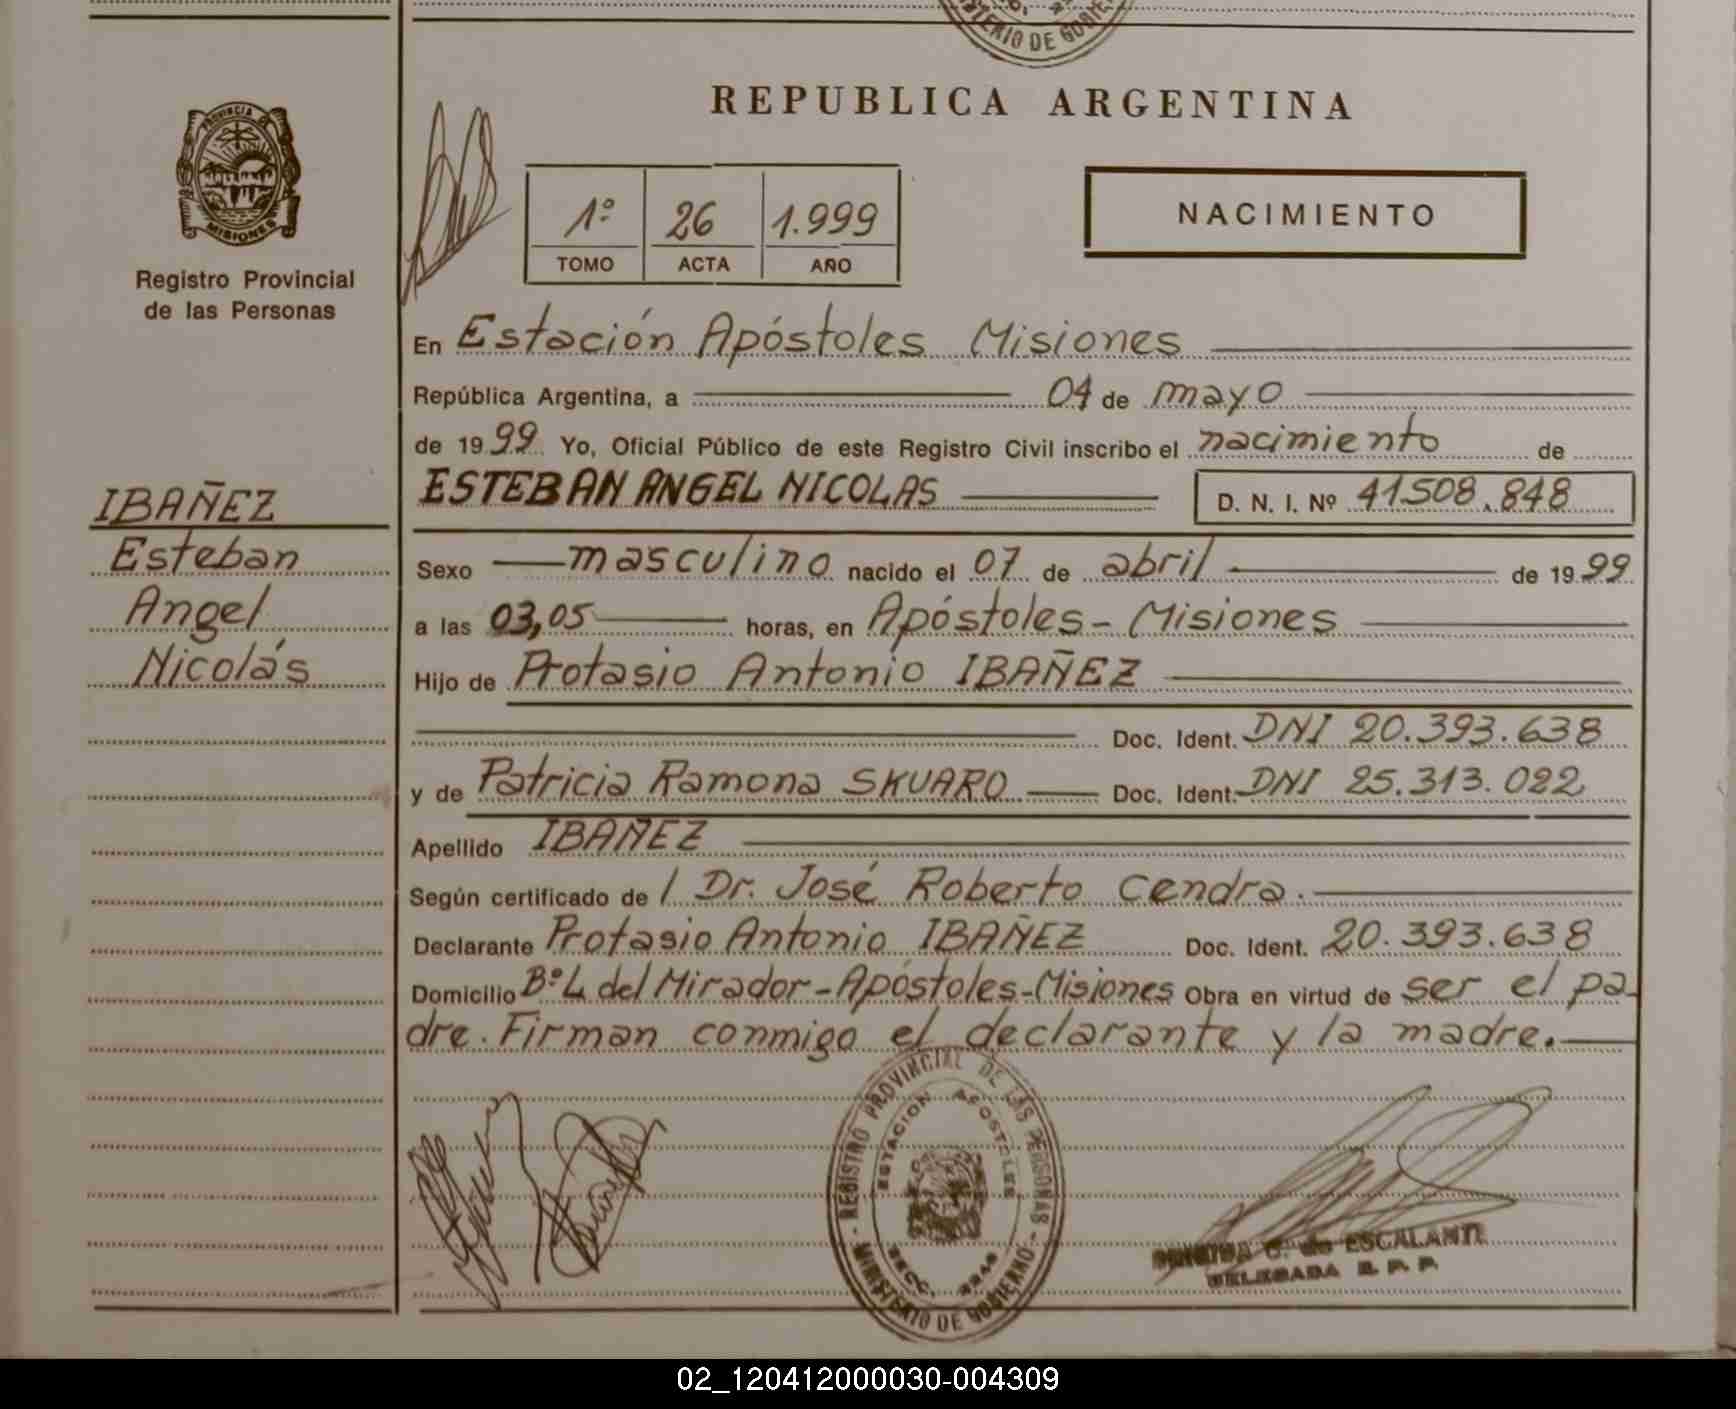 MINISTERIO DE GOBIERNO
REPUBLICA ARGENTINA
PROVINCIA DE
MISIONES
Registro Provincial
de las Personas
1º 26 1.999
TOMO ACTA AÑO
NACIMIENTO
En Estación Apóstoles Misiones
República Argentina, a 04 de mayo
de 1999 Yo, Oficial Público de este Registro Civil inscribo el nacimiento de
ESTEBAN ANGEL NICOLAS D. N. I. Nº 41.508.848
IBAÑEZ
Esteban
Angel
Nicolás
Sexo masculino nacido el 07 de abril de 1999
a las 03,05 horas, en Apóstoles - Misiones
Hijo de Protasio Antonio IBAÑEZ
Doc. Ident. DNI 20.393.638
y de Patricia Ramona SKUARO Doc. Ident. DNI 25.313.022
Apellido IBAÑEZ
Según certificado de / Dr. José Roberto Cendra.
Declarante Protasio Antonio IBAÑEZ Doc. Ident. 20.393.638
Domicilio Bº L del Mirador - Apóstoles - Misiones Obra en virtud de ser el pa-
dre. Firman conmigo el declarante y la madre.
- REGISTRO PROVINCIAL DE LAS PERSONAS -
MINISTERIO DE GOBIERNO
ESTACION APOSTOLES
SECC.
C. de ESCALANTE
DELEGADA R. P. P.
02_120412000030-004309